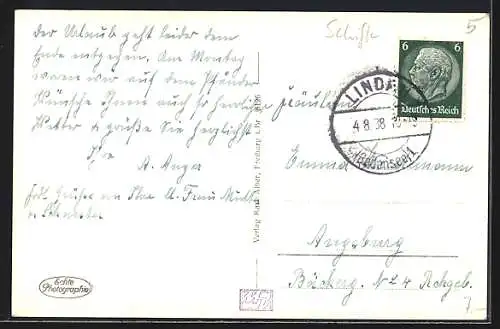 der Urlaub geht leider dem
Ende entgegen. Am Montag
waren wir auf dem Pfänder
Wünsche Ihnen auch so herrliches
Wetter & grüße Sie herzlichst
Ihre
A. Anger
Frdl. Grüße an Ihre & Frau
Echte
Photographie
Verlag Freiburg i. Br.
Schiffe
5
6 6
Deutsches Reich
LINDAU
4.8.38
(Bodensee) 1
Fräulein
Emma
Augsburg
Bäckerg. N24 Rckgeb.